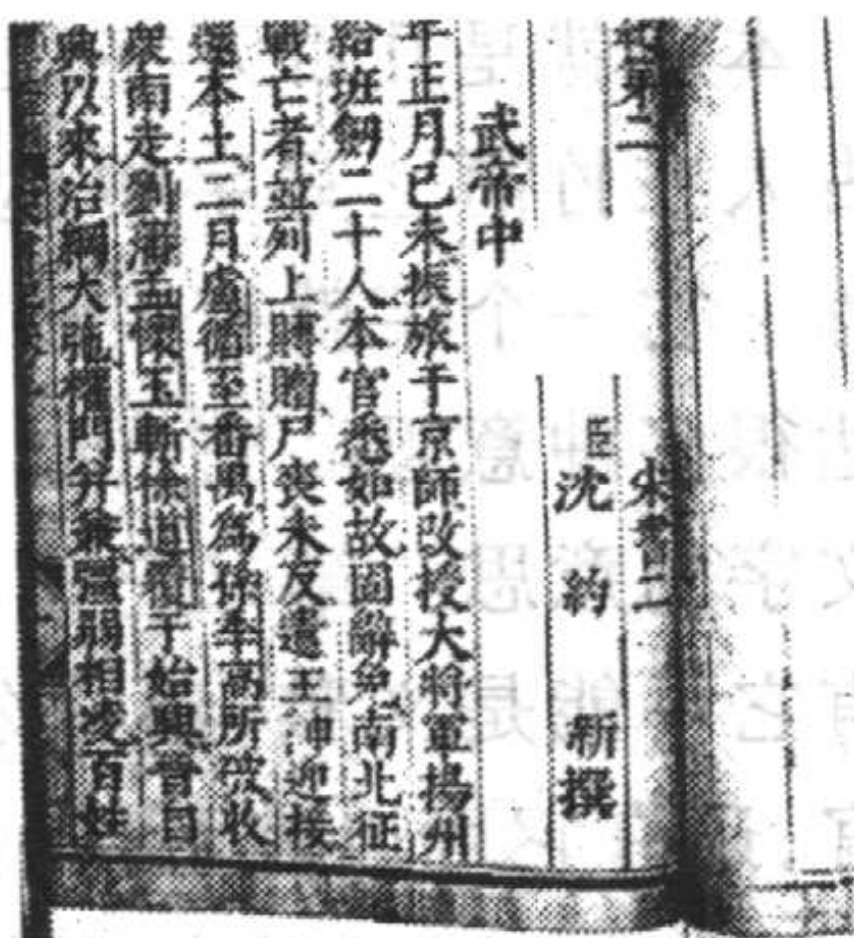 紀第二 宋書二
臣沈約 新撰
武帝中
年正月己未振旅于京師改授大將軍揚州
給班劒二十人本官悉如故固辭免南北征
戰亡者並列上賻贈尸喪未反遣王帥迎接
還本土二月盧循至番禺爲孫季高所破收
衆南走劉藩孟懷玉斬徐道覆于始興晉自
興以來治綱大弛權門幷兼彊弱相凌百姓